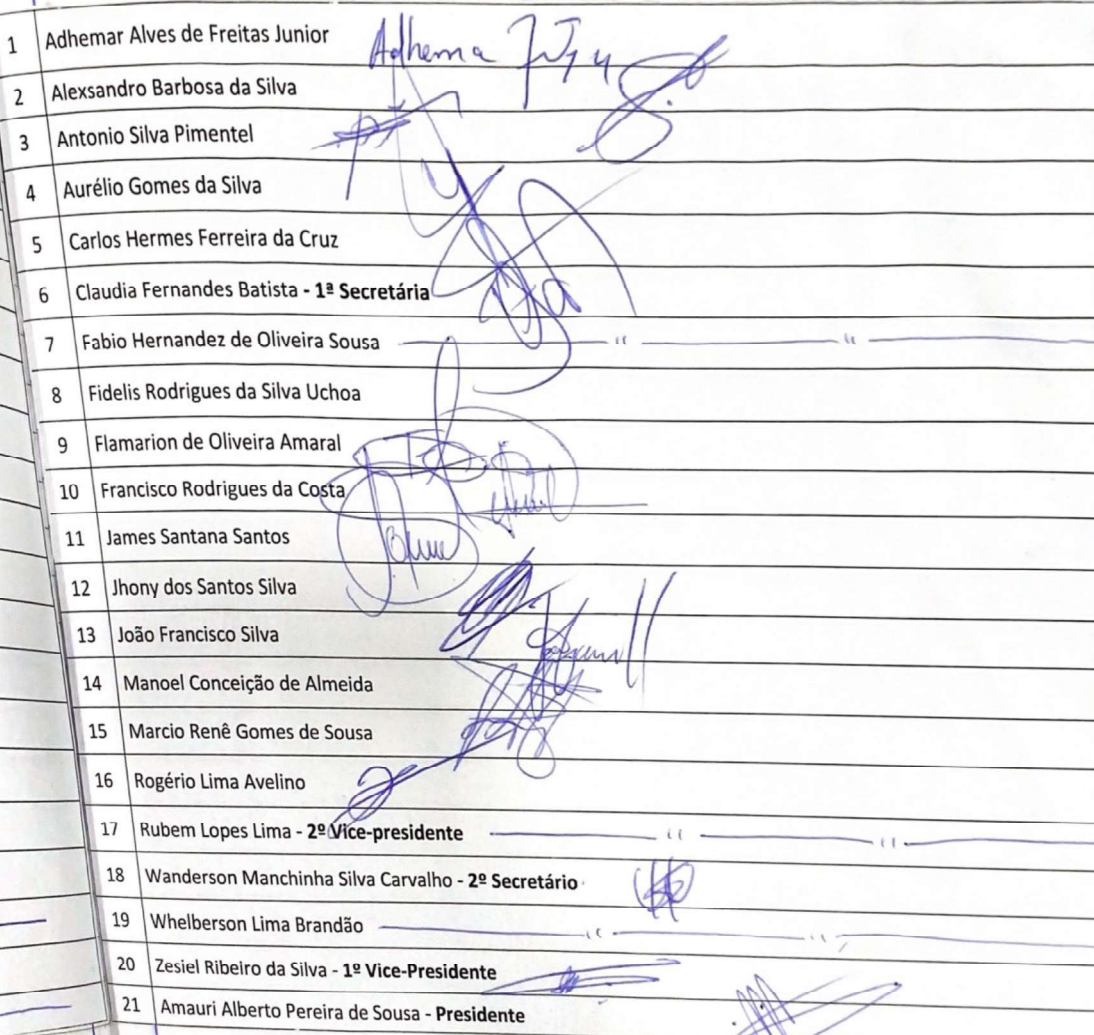 1 Adhemar Alves de Freitas Junior Adhema
2 Alexsandro Barbosa da Silva
3 Antonio Silva Pimentel
4 Aurélio Gomes da Silva
5 Carlos Hermes Ferreira da Cruz
6 Claudia Fernandes Batista - 1ª Secretária
7 Fabio Hernandez de Oliveira Sousa
8 Fidelis Rodrigues da Silva Uchoa
9 Flamarion de Oliveira Amaral
10 Francisco Rodrigues da Costa
11 James Santana Santos
12 Jhony dos Santos Silva
13 João Francisco Silva
14 Manoel Conceição de Almeida
15 Marcio Renê Gomes de Sousa
16 Rogério Lima Avelino
17 Rubem Lopes Lima - 2º Vice-presidente
18 Wanderson Manchinha Silva Carvalho - 2º Secretário
19 Whelberson Lima Brandão
20 Zesiel Ribeiro da Silva - 1º Vice-Presidente
21 Amauri Alberto Pereira de Sousa - Presidente